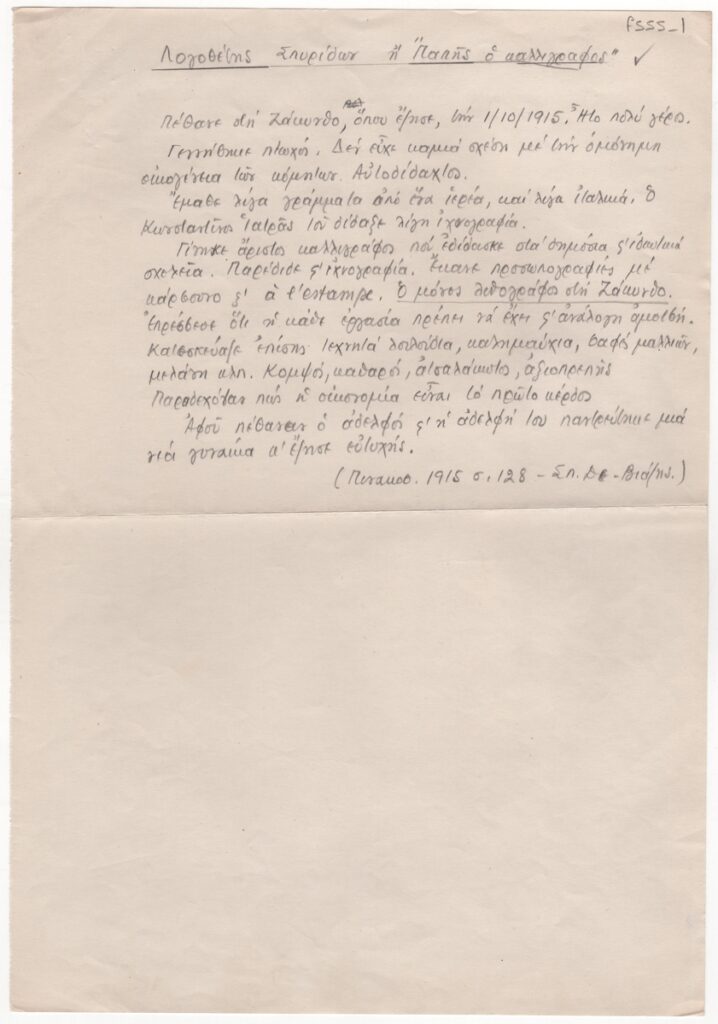 FSSS_1
Λογοθέτης Σπυρίδων ἤ "Παπῆς ὁ καλλιγράφος" ✓
Πέθανε στή Ζάκυνθο, ὅπου ἔζησε, τήν 1/10/1915. Ἦτο πολύ γέρος.
Γεννήθηκε πτωχός. Δέν εἶχε καμιά σχέση μέ τήν ὁμόνημη
οἰκογένεια τῶν κομήτων. Αὐτοδίδακτος.
Ἔμαθε λίγα γράμματα ἀπό ἕνα ἱερέα, καί λίγα ἰταλικά. Ὁ
Κωνσταντῖνος Ἰατρᾶς τόν δίδαξε λίγη ἰχνογραφία.
Γίνηκε ἄριστος καλλιγράφος πού ἐδίδασκε στά δημόσια ϛ' ἰδιωτικά
σχολεῖα. Παρέδιδε ϛ' ἰχνογραφία. Ἔκανε προσωπογραφίες μέ
κάρβουνο ϛ' à l'estampe. Ὁ μόνος λιθογράφος στή Ζάκυνθο.
Ἐπρέσβευε ὅτι ἡ κάθε ἐργασία πρέπει νά ἔχει ϛ' ἀνάλογη ἀμοιβή.
Κατασκεύαζε ἐπίσης τεχνητά λουλούδια, καλημαύχια, βαφές μαλλιῶν,
μελάνη κλπ. Κομψός, καθαρός, ἀτσαλάκωτος, ἀξιοπρεπής
Παραδεχόταν πώς ἡ οἰκονομία εἶναι τό πρῶτο κέρδος
Ἀφοῦ πέθαναν ὁ ἀδελφός ϛ' ἡ ἀδελφή του παντρεύτηκε μιά
νέα γυναίκα κ' ἔζησε εὐτυχής.
(Πινακοθ. 1915 σ. 128 - Σπ. Δε-Βιάζης.)